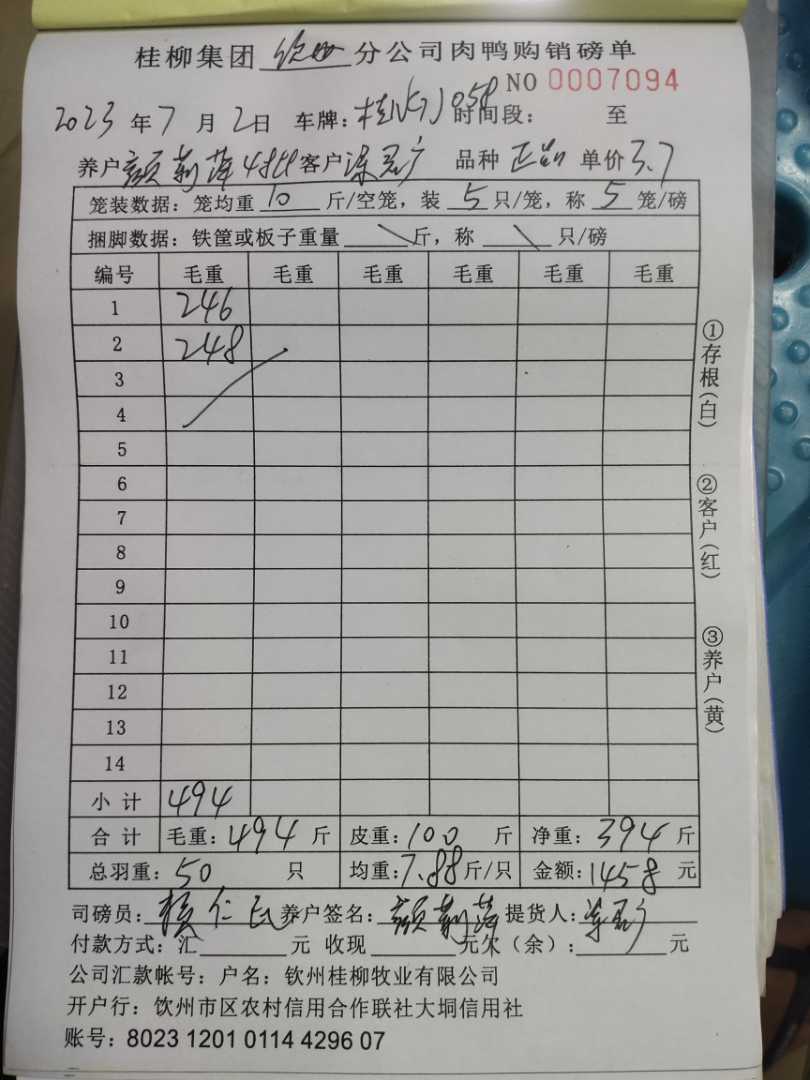 桂柳集团 钦州 分公司肉鸭购销磅单
NO 0007094
2023 年 7 月 2 日 车牌: 058 时间段: 至
养户 颜莉萍 客户 品种 正品 单价 3.7
笼装数据: 笼均重 10 斤/空笼, 装 5 只/笼, 称 5 笼/磅
捆脚数据: 铁筐或板子重量 \ 斤, 称 \ 只/磅
编号 毛重 毛重 毛重 毛重 毛重 毛重
1 246
2 248
3
4
5
6
7
8
9
10
11
12
13
14
小计 494
合计 毛重: 494 斤 皮重: 100 斤 净重: 394 斤
总羽重: 50 只 均重: 7.88 斤/只 金额: 1458 元
司磅员: 养户签名: 颜莉萍 提货人:
付款方式: 汇 元 收现 元 欠(余): 元
公司汇款帐号: 户名: 钦州桂柳牧业有限公司
开户行: 钦州市区农村信用合作联社大垌信用社
账号: 8023 1201 0114 4296 07
①存根(白)
②客户(红)
③养户(黄)